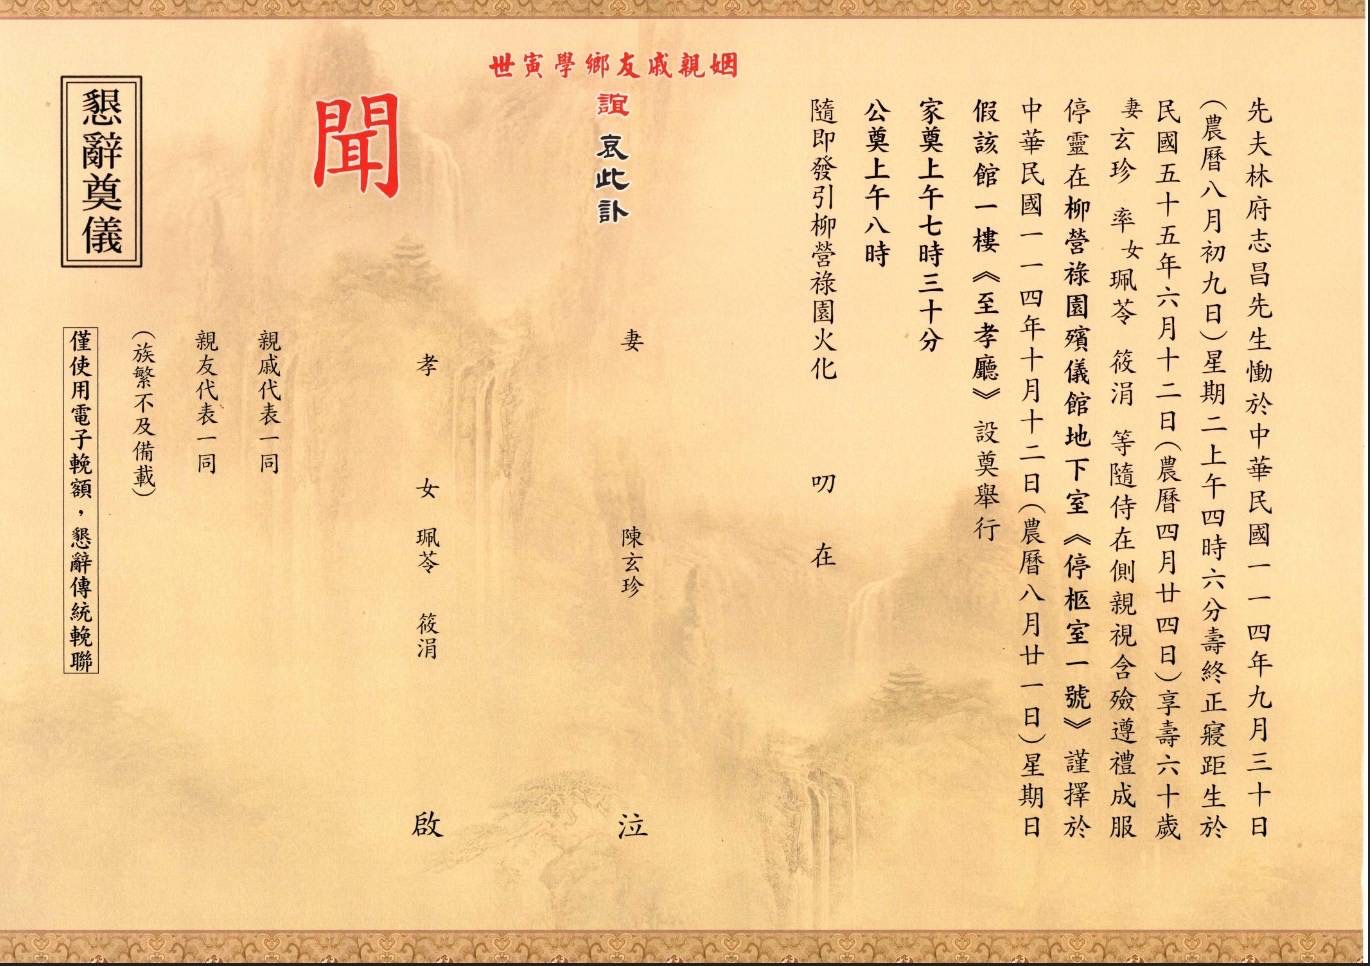 先夫林府志昌先生慟於中華民國一一四年九月三十日
(農曆八月初九日)星期二上午四時六分壽終正寢距生於
民國五十五年六月十二日(農曆四月廿四日)享壽六十歲
妻玄珍 率女珮苓 筱涓 等隨侍在側親視含殮遵禮成服
停靈在柳營祿園殯儀館地下室《停柩室一號》謹擇於
中華民國一一四年十月十二日(農曆八月廿一日)星期日
假該館一樓《至孝廳》設奠舉行
家奠上午七時三十分
公奠上午八時
隨即發引柳營祿園火化 叨 在
姻親戚友鄉學寅世
誼 哀此訃
聞
妻 陳玄珍 泣
孝 女 珮苓 筱涓 啟
親戚代表一同
親友代表一同
(族繁不及備載)
懇辭奠儀
僅使用電子輓額,懇辭傳統輓聯